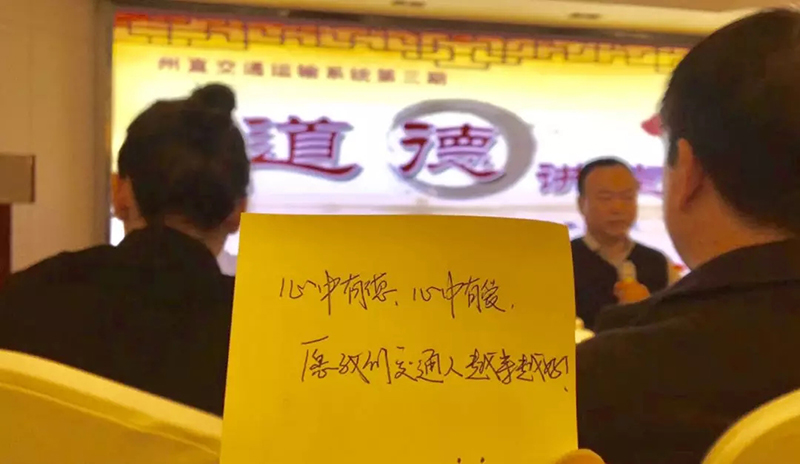 州直交通运输系统第三期
道德讲堂
心中有德、心中有爱,
愿我们交通人越来越好!